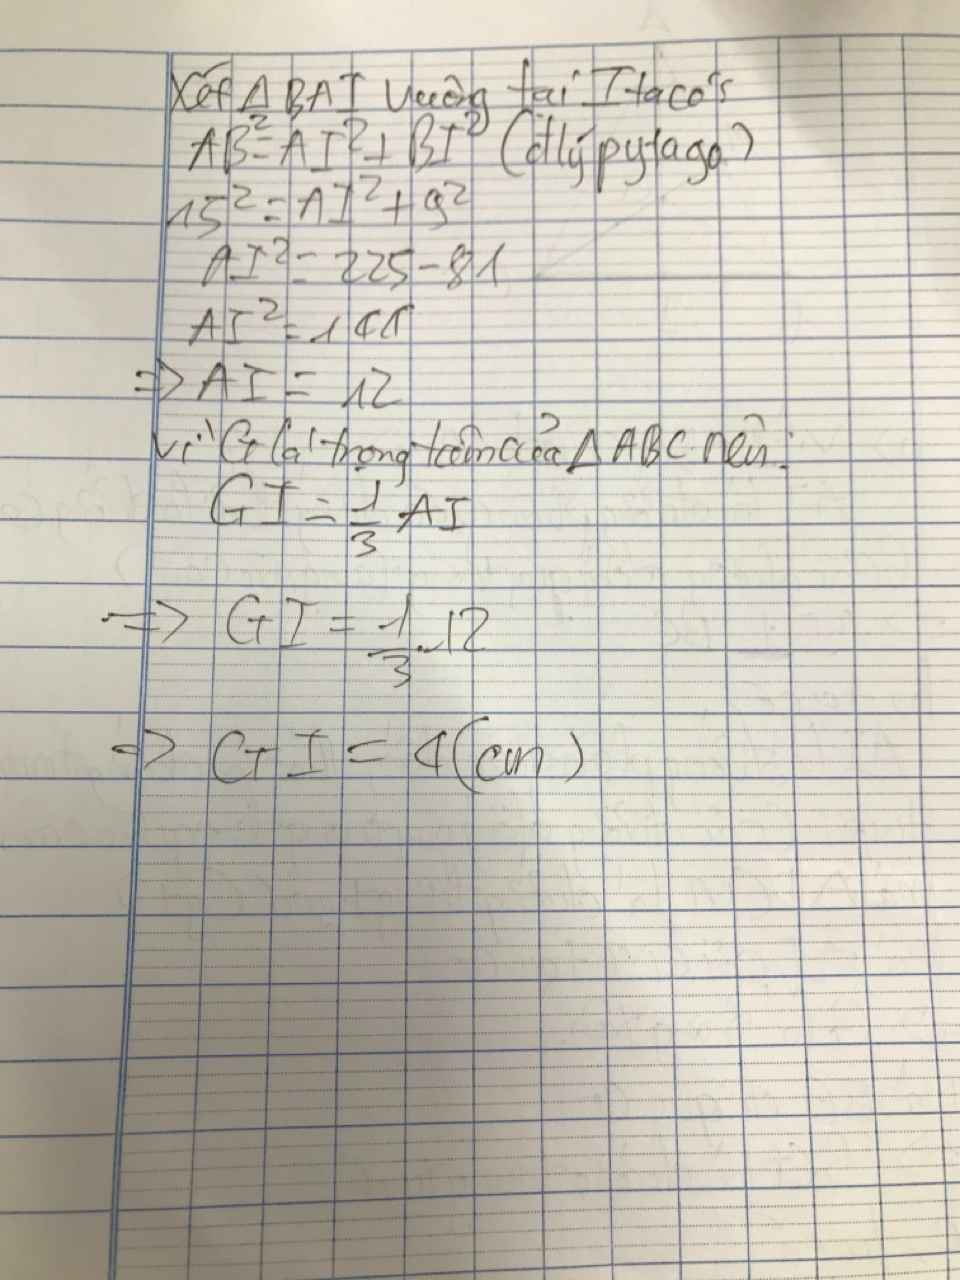 Xét Δ BAI vuông tại I ta có:
AB² = AI² + BI² (đlý pytago)
15² = AI² + 9²
AI² = 225 - 81
AI² = 144
=> AI = 12
Vì G là trọng tâm của Δ ABC nên:
GI = 1/3 AI
=> GI = 1/3 . 12
=> GI = 4 (cm)